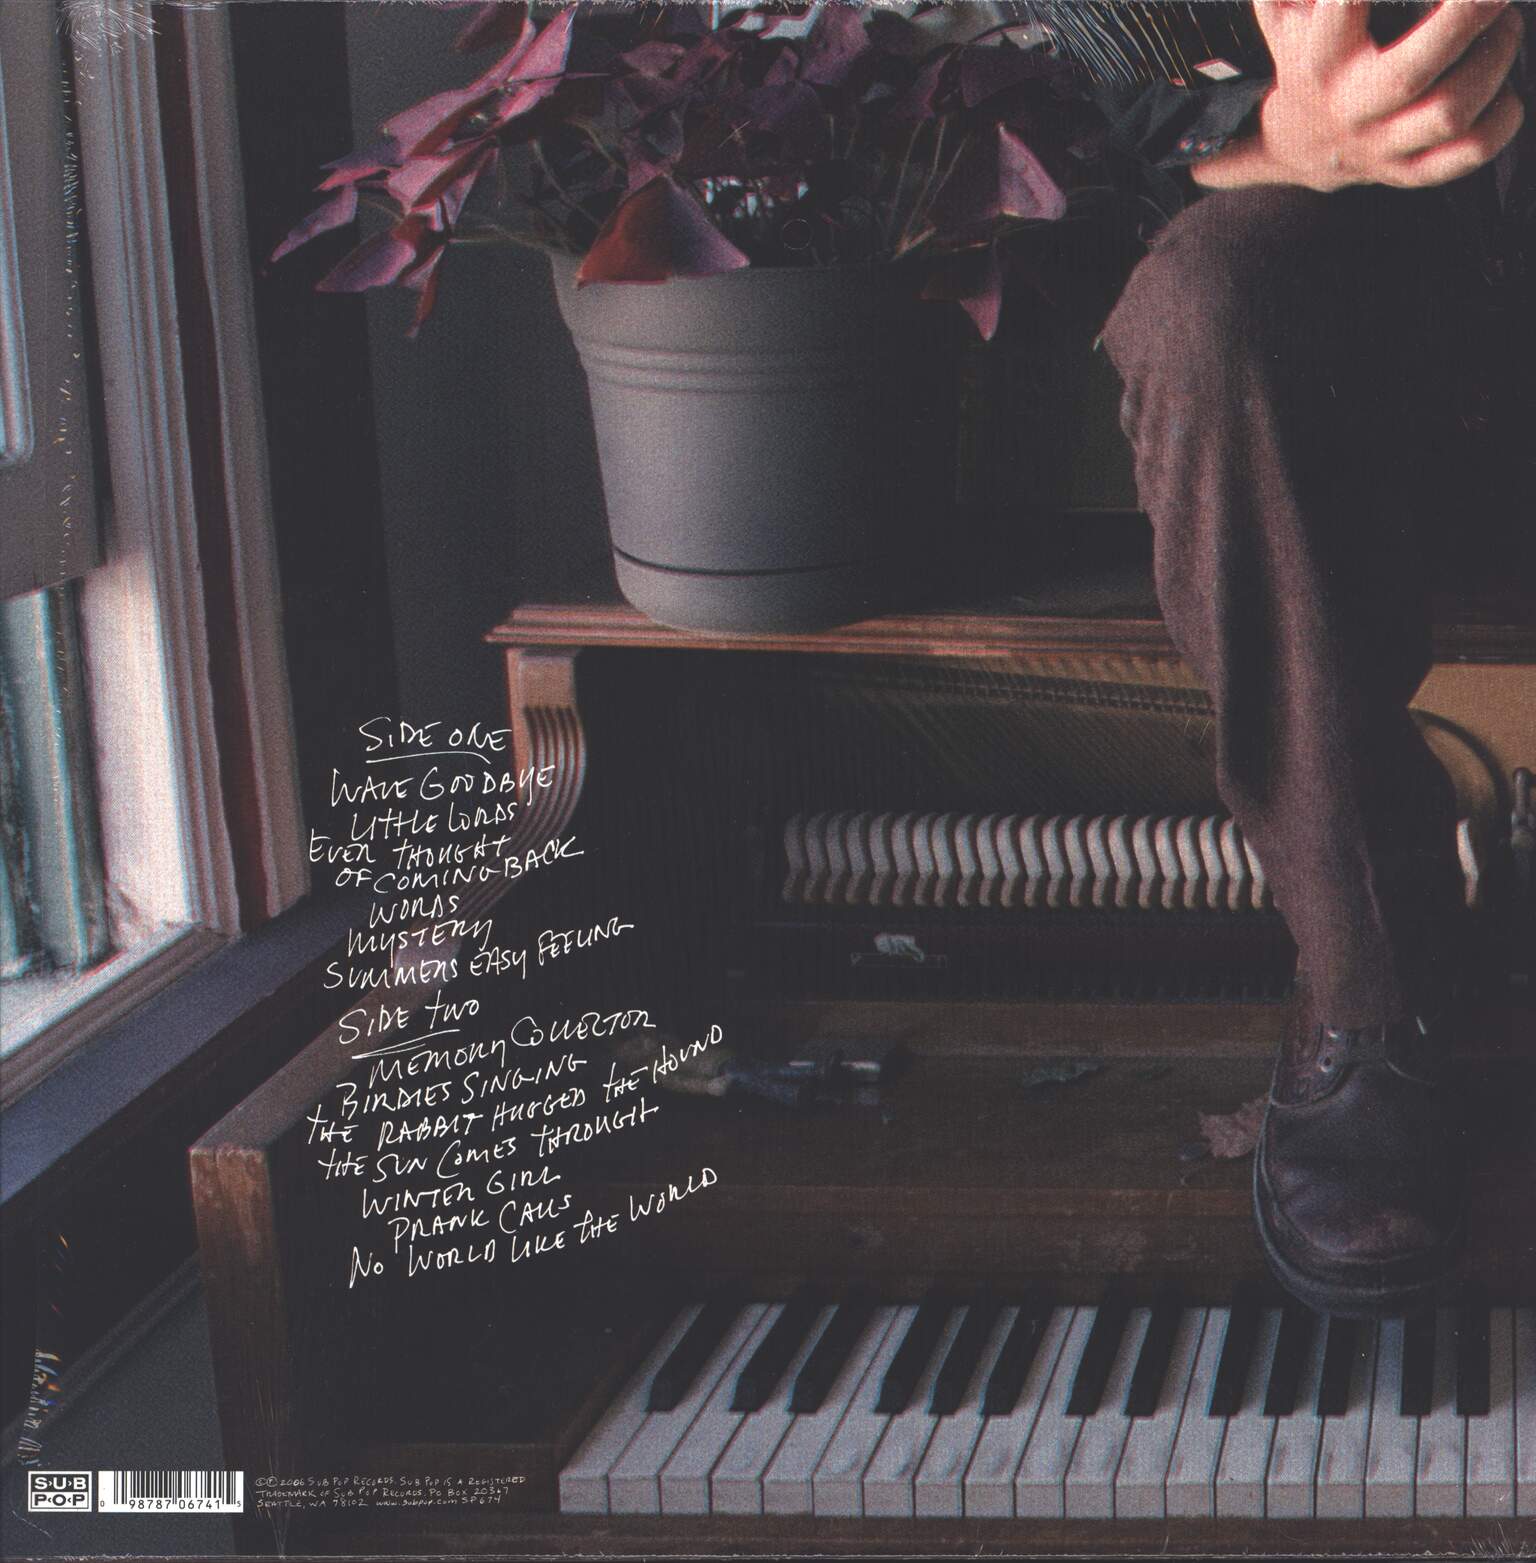 SIDE ONE
WAVE GOODBYE
LITTLE LORDS
EVER THOUGHT
OF COMING BACK
WORDS
MYSTERY
SUMMERS EASY FEELING
SIDE TWO
MEMORY COLLECTOR
BIRDIES SINGING
THE RABBIT HUGGED THE HOUND
THE SUN COMES THROUGH
WINTER GIRL
PRANK CALLS
NO WORLD LIKE THE WORLD
SUB
POP
0 98787 06741 5
©℗ 2006 SUB POP RECORDS. SUB POP IS A REGISTERED
TRADEMARK OF SUB POP RECORDS. PO BOX 20367
SEATTLE, WA 98102 www.subpop.com SP674